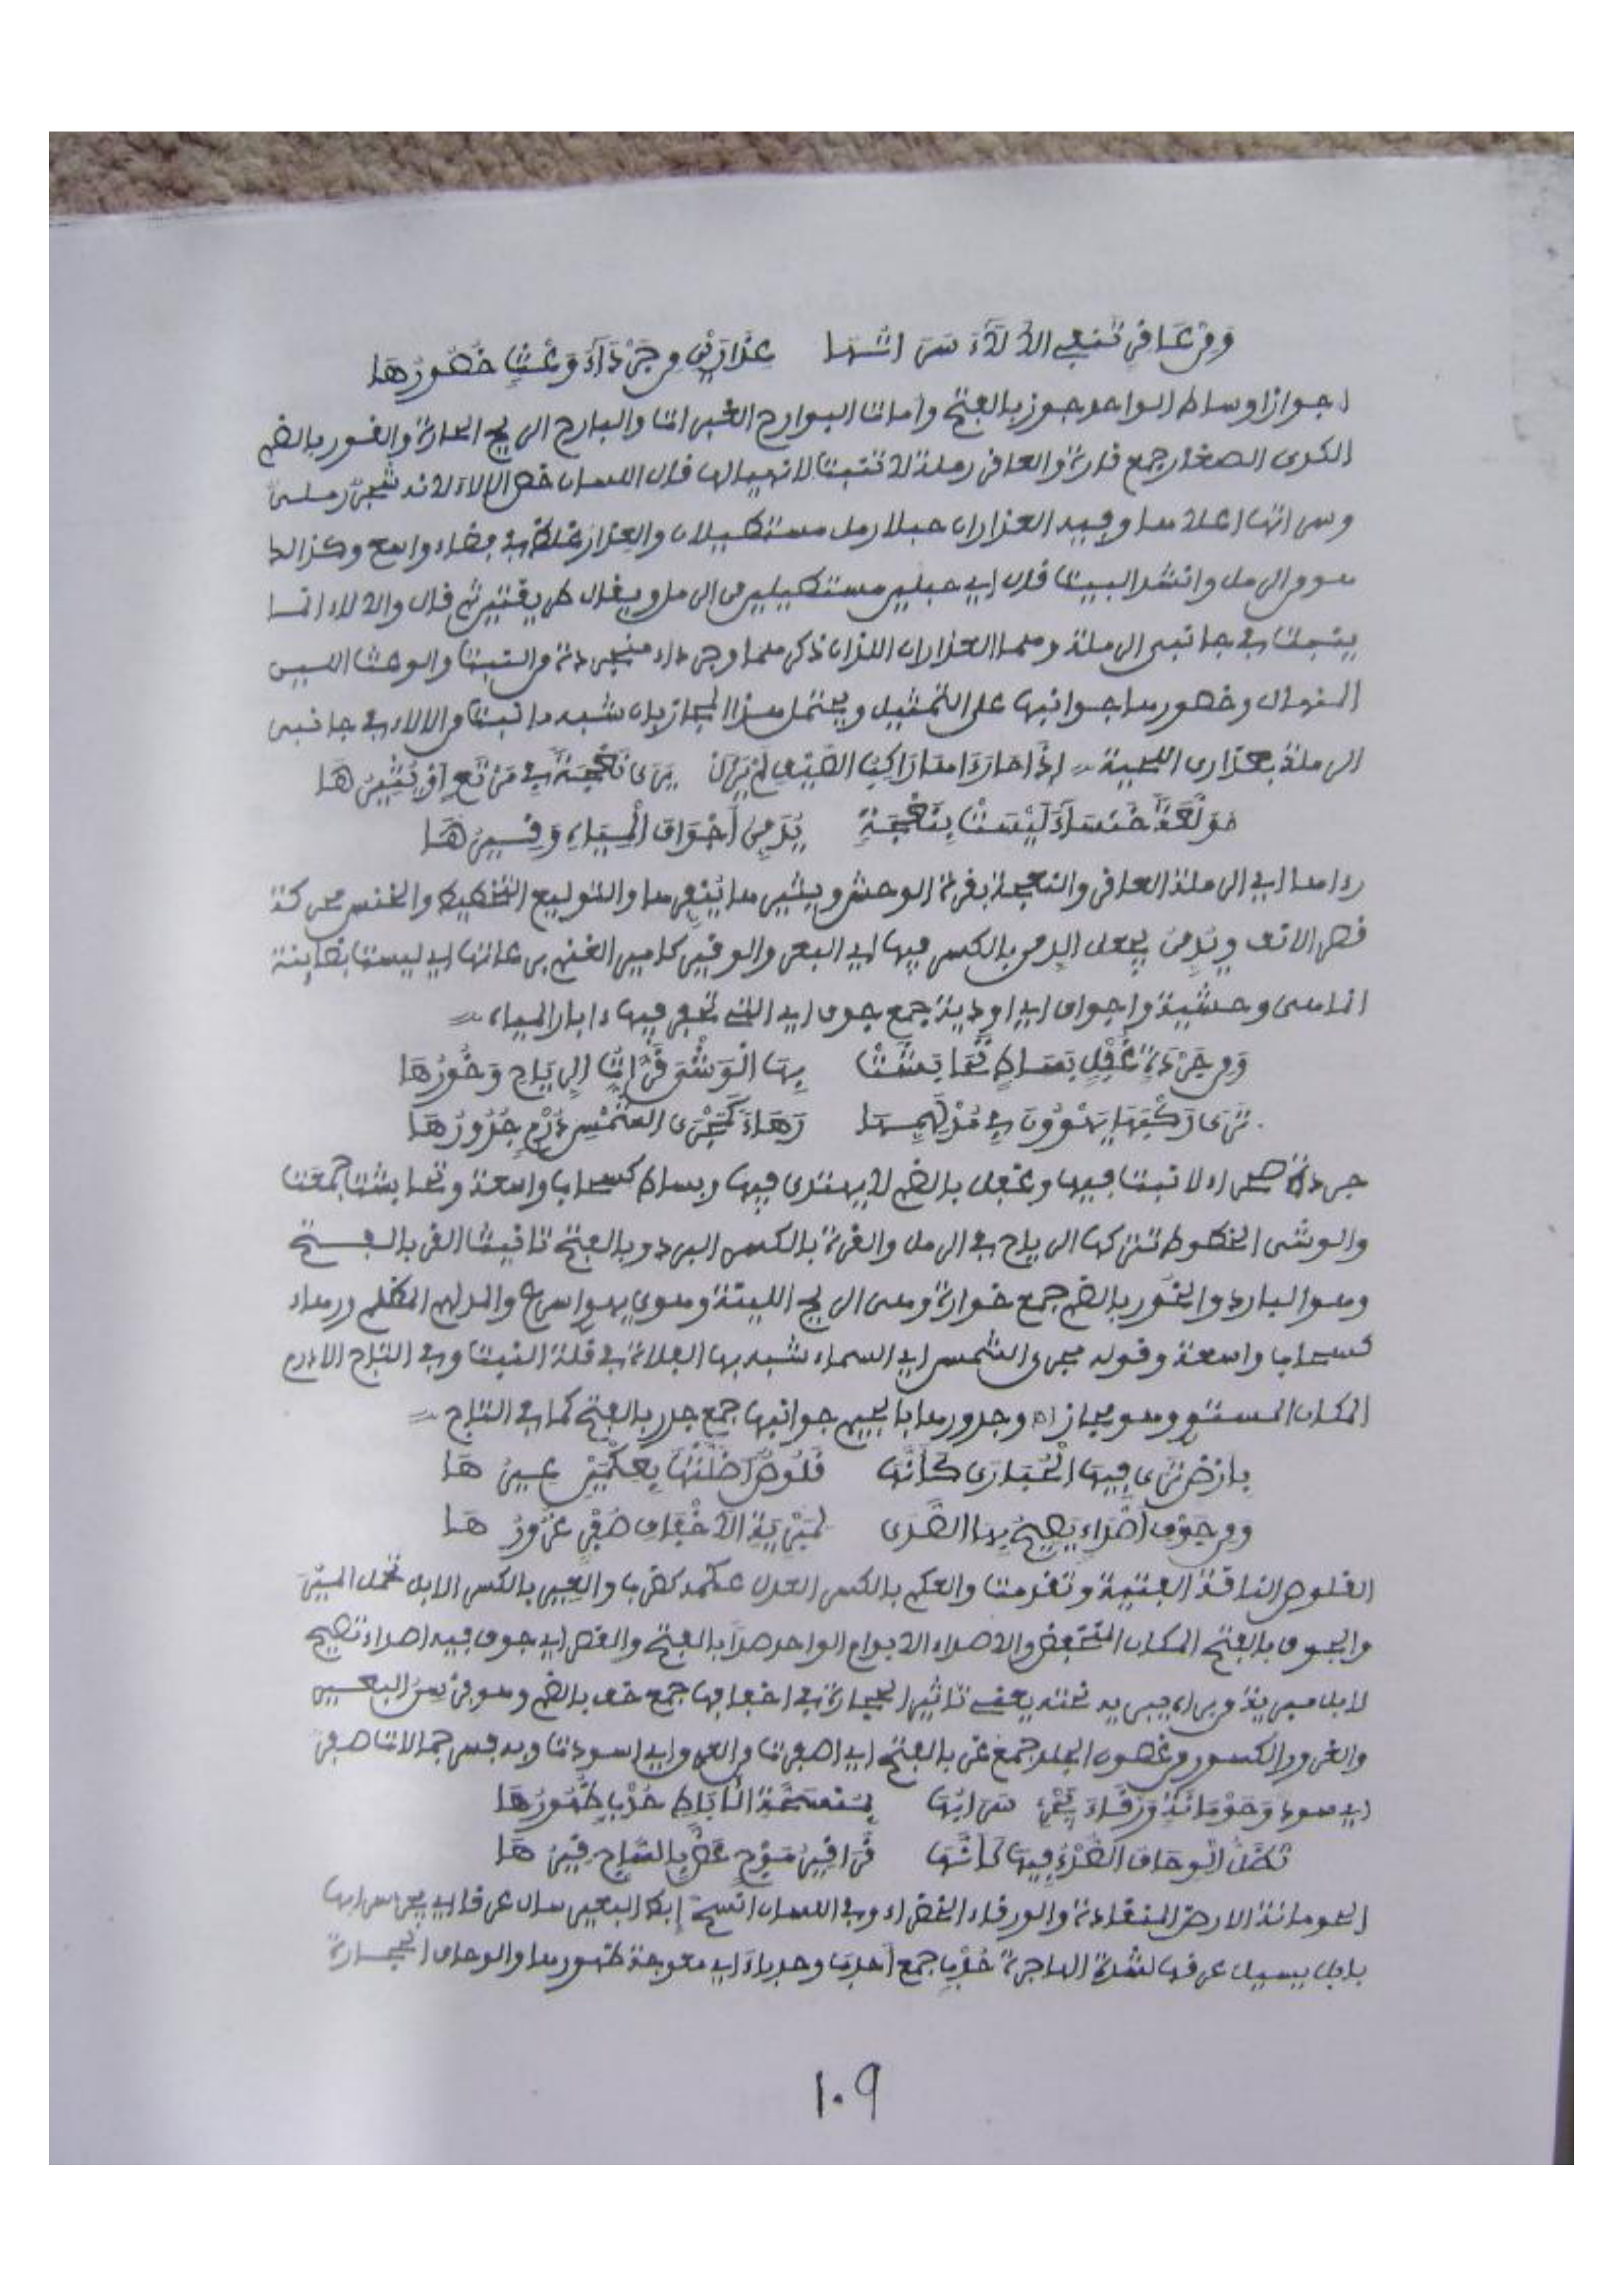 وَمِنْ عَاقِرٍ تَنْفِي الْأَلَاءَ سَرَاتُهَا عِذَارَيْنِ مِنْ جَرْدَاءَ وَعْثٍ خُصُورُهَا
أجواز أوساط الواحد جوز بالفتح وأمات البوارح الغبرات والبارح الريح الحارة والقور بالضم
الكدى الصغار جمع قارة والعاقر رملة لا تنبت لانهيالها قال اللسان خص الالاء لانه شجر رملي
وسراتها أعلاها وفيه العذاران حبلا رمل مستطيلان والعذار غلظ في فضاء واسع وكذالك
هو من الرمل وأنشد البيت قال أي حبلين مستطيلين من الرمل ويقال طريقتين ثم قال والالاء انما
ينبت في جانبي الرملة وهما العذاران اللذان ذكرهما وجرداء منجردة من النبت والوعث اللين
المنهال وخصورها جوانبها على التمثيل ويحتمل هذا المجاز بان شبه ما نبت من الالاء في جانبي
الرملة بعذاري اللحية = إِذَا حَارَدَاهَا رَاكِبُ الصَّيْفِ لَمْ يَزَلْ يَرَى نَعْجَةً فِي مَرْتَعٍ أَوْ يُثِيرُهَا
مُوَلَّعَةً خَنْسَاءَ لَيْسَتْ بِنَعْجَةٍ يُدَمِّنُ أَجْوَافَ الْمِيَاهِ وَقِيرُهَا
رداها أي الرملة العاقر والنعجة بقرة الوحش ويثيرها ينفرها والتوليع التخطيط والخنس محركة
قصر الانف ويدمن يجعل الدمن بالكسر فيها أي البعر والوقير كامير الغنم برعاتها أي ليست بضاينة
انما هي وحشية وأجواف أي أودية جمع جوف أي التي تحفر فيها ءابار المياه =
وَمِنْ جَرْدَةٍ غُفْلٍ بَسَاطٍ تَحَاسَنَتْ بِهَا الْوَشْيَ قَرَّاتُ الرِّيَاحِ وَخُورُهَا
تَرَى رَكْبَهَا يَهْوُونَ فِي مُدْلَهِمَّةٍ رَهَاءَ كَمَجْرَى الشَّمْسِ دُرْمٍ جُدُورُهَا
جردة صحراء لا نبت فيها وغفل بالضم لا يهتدى فيها وبساط كسحاب واسعة وتحاسنت جمعت
والوشي الخطوط تتركها الرياح في الرمل والقرة بالكسر البرد وبالفتح تانيث القر بالفتح
وهو البارد والخور بالضم جمع خوارة وهي الريح اللينة وهوى يهوي أسرع والمدلهم المظلم ورهاء
كسحاب واسعة وقوله مجرى الشمس أي السماء شبه بها الفلاة في قلة النبت وفي التاج الادرم
المكان المستوي وهو مجاز اه وجدورها بالجيم جوانبها جمع جدر بالفتح كما في التاج =
بِأَرْضٍ تَرَى فِيهَا الْحُبَارَى كَأَنَّهَا قَلُوصٌ أَضَلَّتْهَا بِعِكْمَيْنِ عِيرُهَا
وَمِنْ جَوْفِ أَصْدَاءٍ يَصِيحُ بِهَا الصَّدَى لِمَبْرِيَّةِ الْأَخْفَافِ صُفْرٍ غُرُورُهَا
القلوص الناقة الفتية وتقدمت والعكم بالكسر العدل عكمه كضرب والعير بالكسر الابل تحمل الميرة
والجوف بالفتح المكان المنخفض والاصداء الابوام الواحد صدا بالفتح والقصر أي جوف فيه أصداء تصيح
لابل مبرية من براه يبريه نحته يعني تاثير الحجارة في أخفافها جمع خف بالضم وهو فرسن البعير
والغرور الكسور من غضون الجلد جمع غر بالفتح أي اصفرت من العرق أي اسودت وبه فسر جمالات صفر
أي سود وَحَوْمَانَةٍ وَرْقَاءَ يَجْرِي سَرَابُهَا بِمُنْسَحَّةِ الْآبَاطِ حُدْبٍ ظُهُورُهَا
تَظَلُّ الْوِحَافُ الصُّدْءُ فِيهَا كَأَنَّهَا قَرَاقِيرُ مَوْجٍ غَصَّ بِالسَّاجِ قِيرُهَا
الحومانة الارض المنقادة والورقاء الخضراء وفي اللسان انسح إبط البعير سال عرقا أي يجري سرابها
بابل يسيل عرقها لشدة الهاجرة حدب جمع أحدب وحدباء أي معوجة ظهورها والوحاف الحجارة
١٠٩